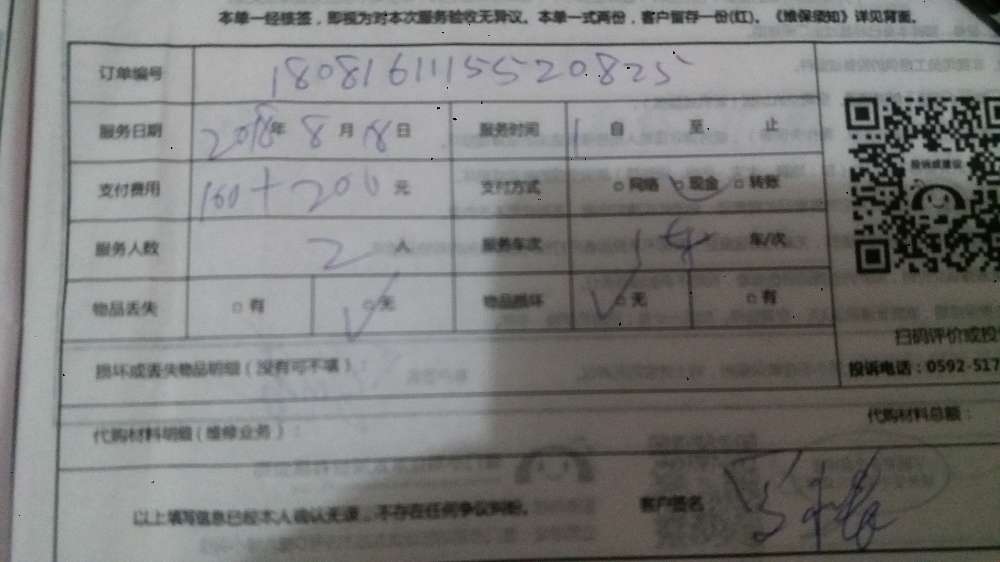 本单一经核签，即视为对本次服务验收无异议。本单一式两份，客户留存一份(红)。《维保须知》详见背面。
订单编号 1808161115520825
服务日期 2018年 8 月 18 日 服务时间 自 至 止
支付费用 160+200 元 支付方式 □ 网络 □ 现金 □ 转账
投诉或建议
服务人数 2 人 服务车次 1 车/次
物品丢失 □ 有 □ 无 物品损坏 □ 无 □ 有
扫码评价或投
损坏或丢失物品明细（没有可不填）：
投诉电话：0592-517
代购材料总额：
代购材料明细（维修业务）：
以上填写信息已经本人确认无误，不存在任何争议纠纷。 客户签名